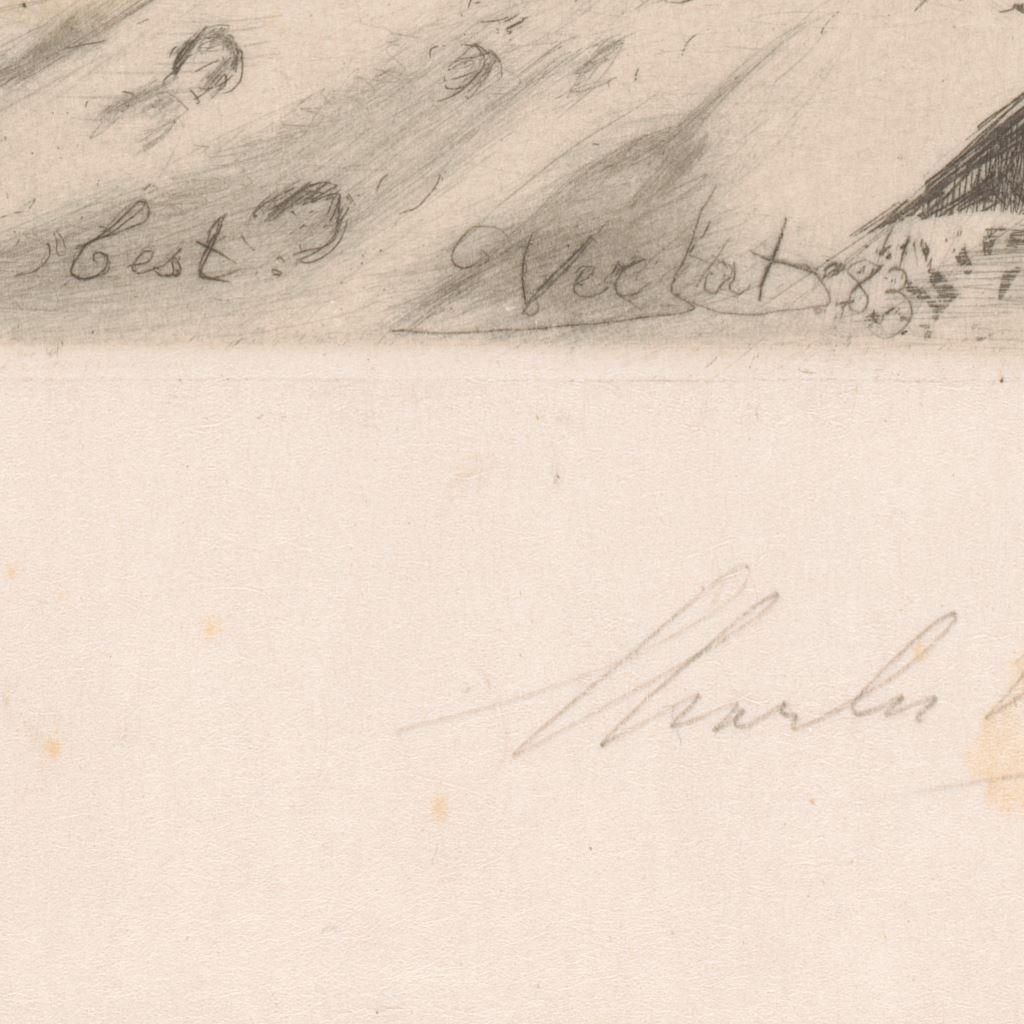 best. Verlat 83
Charles